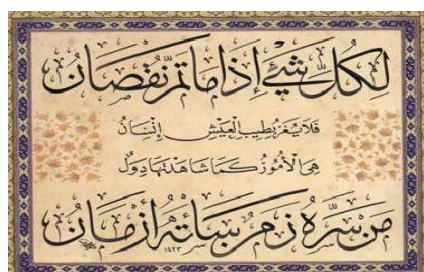 لِكُلِّ شَيْءٍ إِذَا مَا تَمَّ نُقْصَانُ
فَلَا يُغَرَّ بِطِيبِ الْعَيْشِ إِنْسَانُ
هِيَ الْأُمُورُ كَمَا شَاهَدْتَهَا دُوَلٌ
مَنْ سَرَّهُ زَمَنٌ سَاءَتْهُ أَزْمَانُ
١٤٢٣